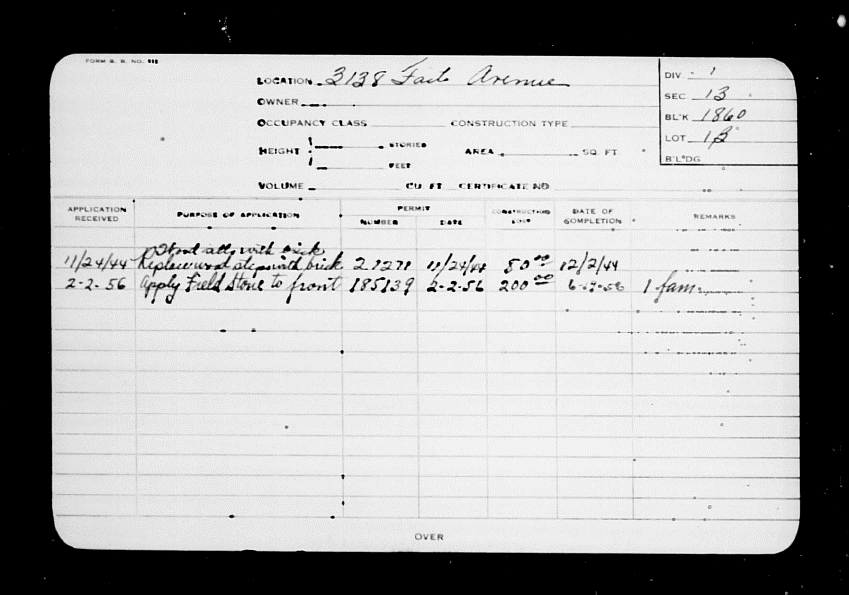 FORM B. B. NO. 918
LOCATION 3138 Fait Avenue
OWNER
OCCUPANCY CLASS CONSTRUCTION TYPE
HEIGHT STORIES AREA SQ. FT.
FEET
VOLUME CU. FT. CERTIFICATE NO.
DIV. 1
SEC 13
BL'K 1860
LOT 13
B'LDG
APPLICATION RECEIVED PURPOSE OF APPLICATION PERMIT NUMBER DATE CONSTRUCTION COST DATE OF COMPLETION REMARKS
with brick
11/24/44 Replace wood steps with brick 27271 11/24/44 50.00 12/2/44
2-2-56 Apply Field Stone to front 185139 2-2-56 200.00 1 fam.
OVER